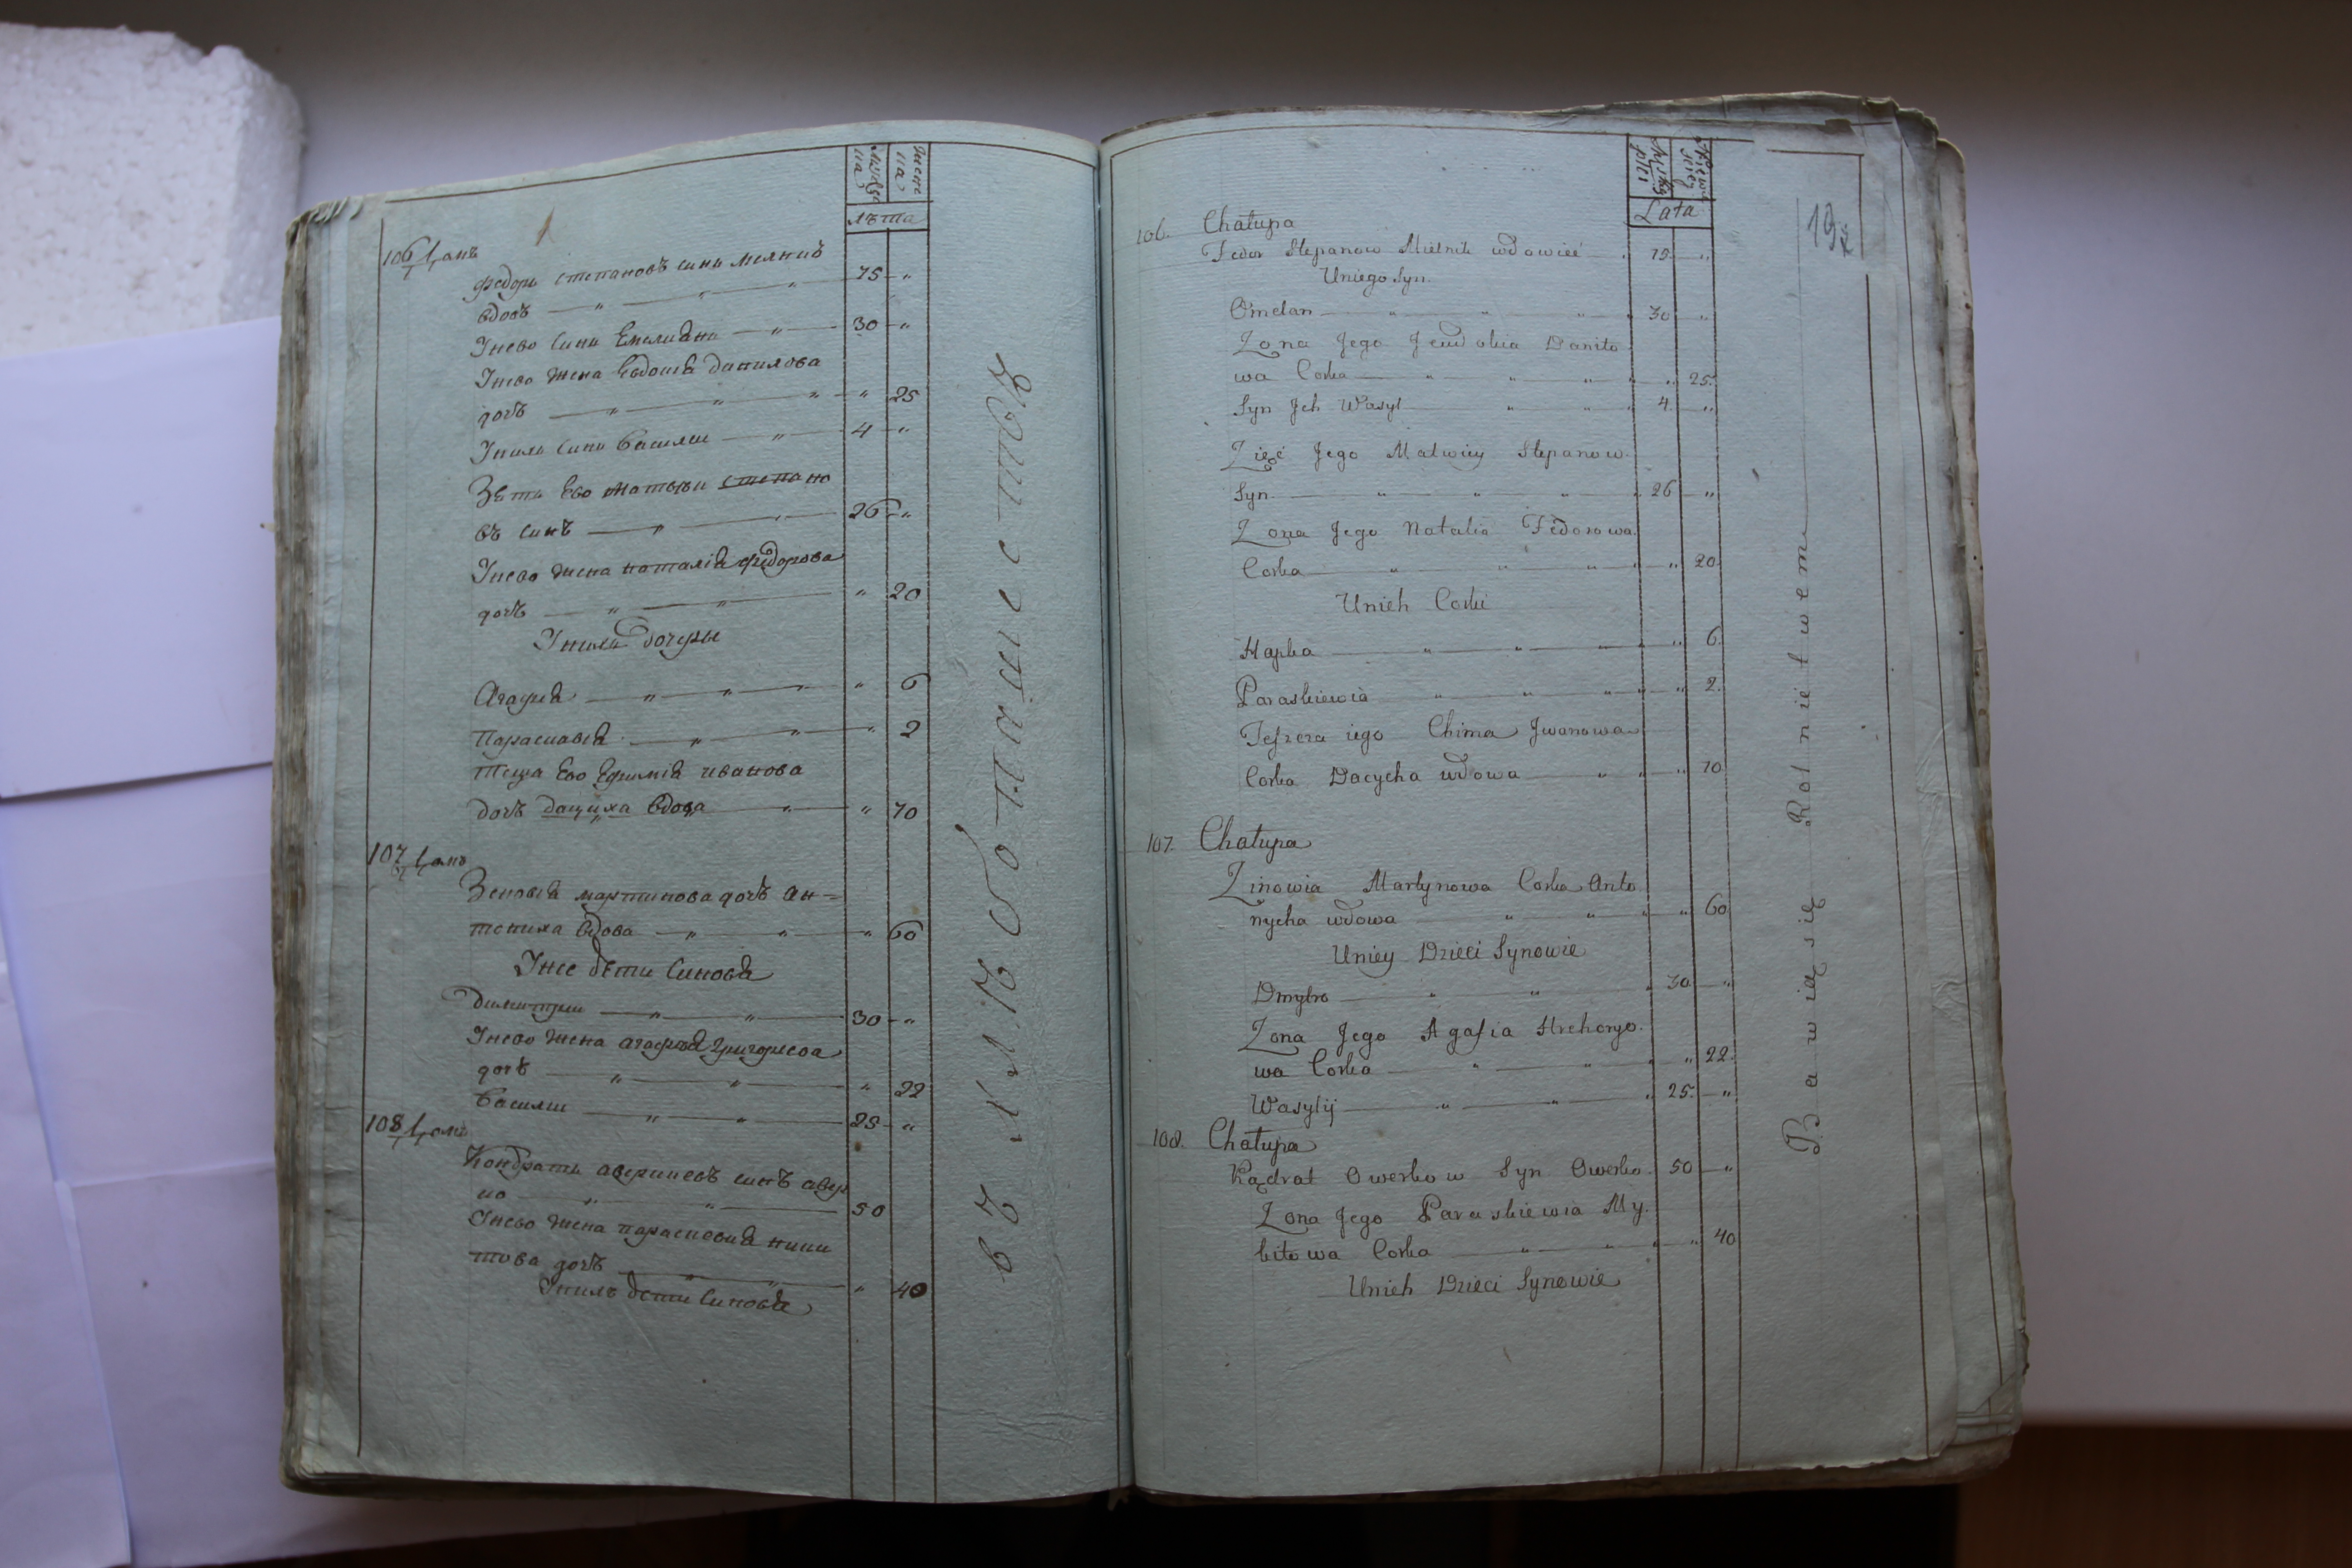 мужеска
женска
лѣта
106
федоръ степановъ синъ мелникъ
вдовъ — „ — „ — „ — 75 — „
Унево синъ Емелианъ — „ — 30 — „
Унево жена Евдокиа данилова
дочь — „ — „ — „ — „ 25
Унихъ синъ василии — „ — 4 — „
Зять Ево матвъи степано
въ синъ — „ — „ — 26 — „
Унево жена наталиа федорова
дочь — „ — „ — „ 20
Унихъ дочеры
Агафиа — „ — „ — „ — „ 6
Параскевиа — „ — „ — „ 2
теща Ево Ефимиа иванова
дочь дациха вдова — „ — „ 70
107
Зеновиа мартинова дочь ан=
тониха вдова — „ — „ — „ 60
Унее дѣти синовя
димитрии — „ — „ — 30 — „
Унево жена агафиа григориева
дочь — „ — „ — „ 22
василии — „ — „ — 25 — „
108
Кондратъ авериневъ синъ авер
ко — „ — „ — 50
Унево жена параскевиа ники
това дочь — „ — „ — „ 40
Унихъ дети синовя
Męskiey płci
Lata
19
106. Chałupa
Fedor Stepanow Mielnik wdowiec — „ 75 — „
Uniego Syn.
Omelan — „ — „ — „ — „ 30 — „
Zona Jego Jewdokia Daniło
wa Corka — „ — „ — „ — „ 25.
Syn Jch Wasyl — „ — „ — „ 4. — „
Zięć Jego Matwiey Stepanow.
Syn. — „ — „ — „ — „ 26 — „
Zona Jego Natalia Fedorowa.
Corka — „ — „ — „ — „ 20.
Unich Corki
Hapka — „ — „ — „ — „ 6.
Paraskiewia — „ — „ — „ — „ 2.
Teszcza iego Chima Jwanowa
Corka Dacycha wdowa — „ — „ 70
107. Chałupa
Zinowia Martynowa Corka Anto
nycha wdowa — „ — „ — „ 60
Uniey Dzieci Synowie
Dmytro — „ — „ — „ 30 — „
Zona Jego Agafia Hrehoryo.
wa Corka — „ — „ — „ 22.
Wasylij — „ — „ — „ 25. — „
108. Chałupa
Kądrat Owerkow Syn Owerko. 50 — „
Zona Jego Paraskiewia My.
kitowa Corka — „ — „ — „ 40
Unich Dzieci Synowie
Bawią się Rolnictwem